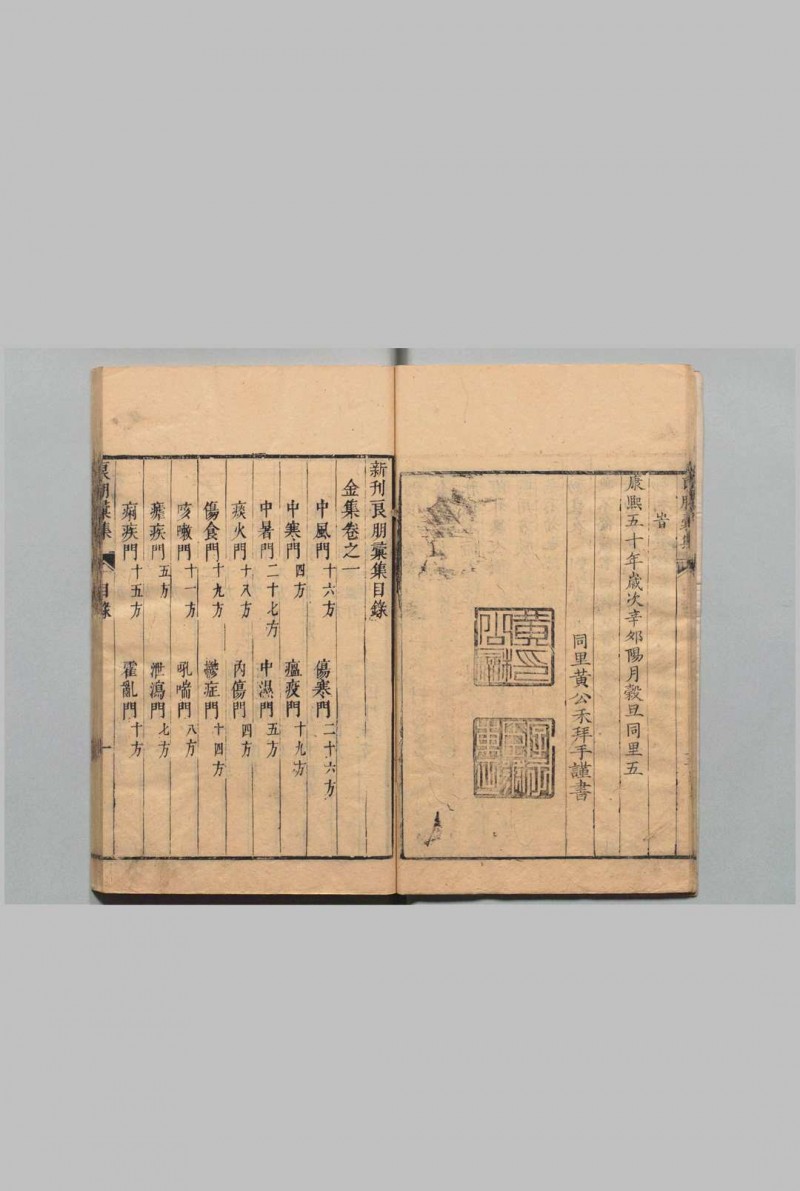 旹
康熙五十年歲次辛卯陽月穀旦同里五
同里黃公禾拜手謹書
新刊良朋彙集目錄
金集卷之一
中風門十六方 傷寒門二十六方
中寒門四方 瘟疫門十九方
中暑門二十七方 中濕門五方
痰火門十八方 內傷門四方
傷食門十九方 鬱症門十四方
咳嗽門十一方 吼喘門八方
瘧疾門五方 泄瀉門七方
痢疾門十五方 霍亂門十方
良朋彙集 目錄 一